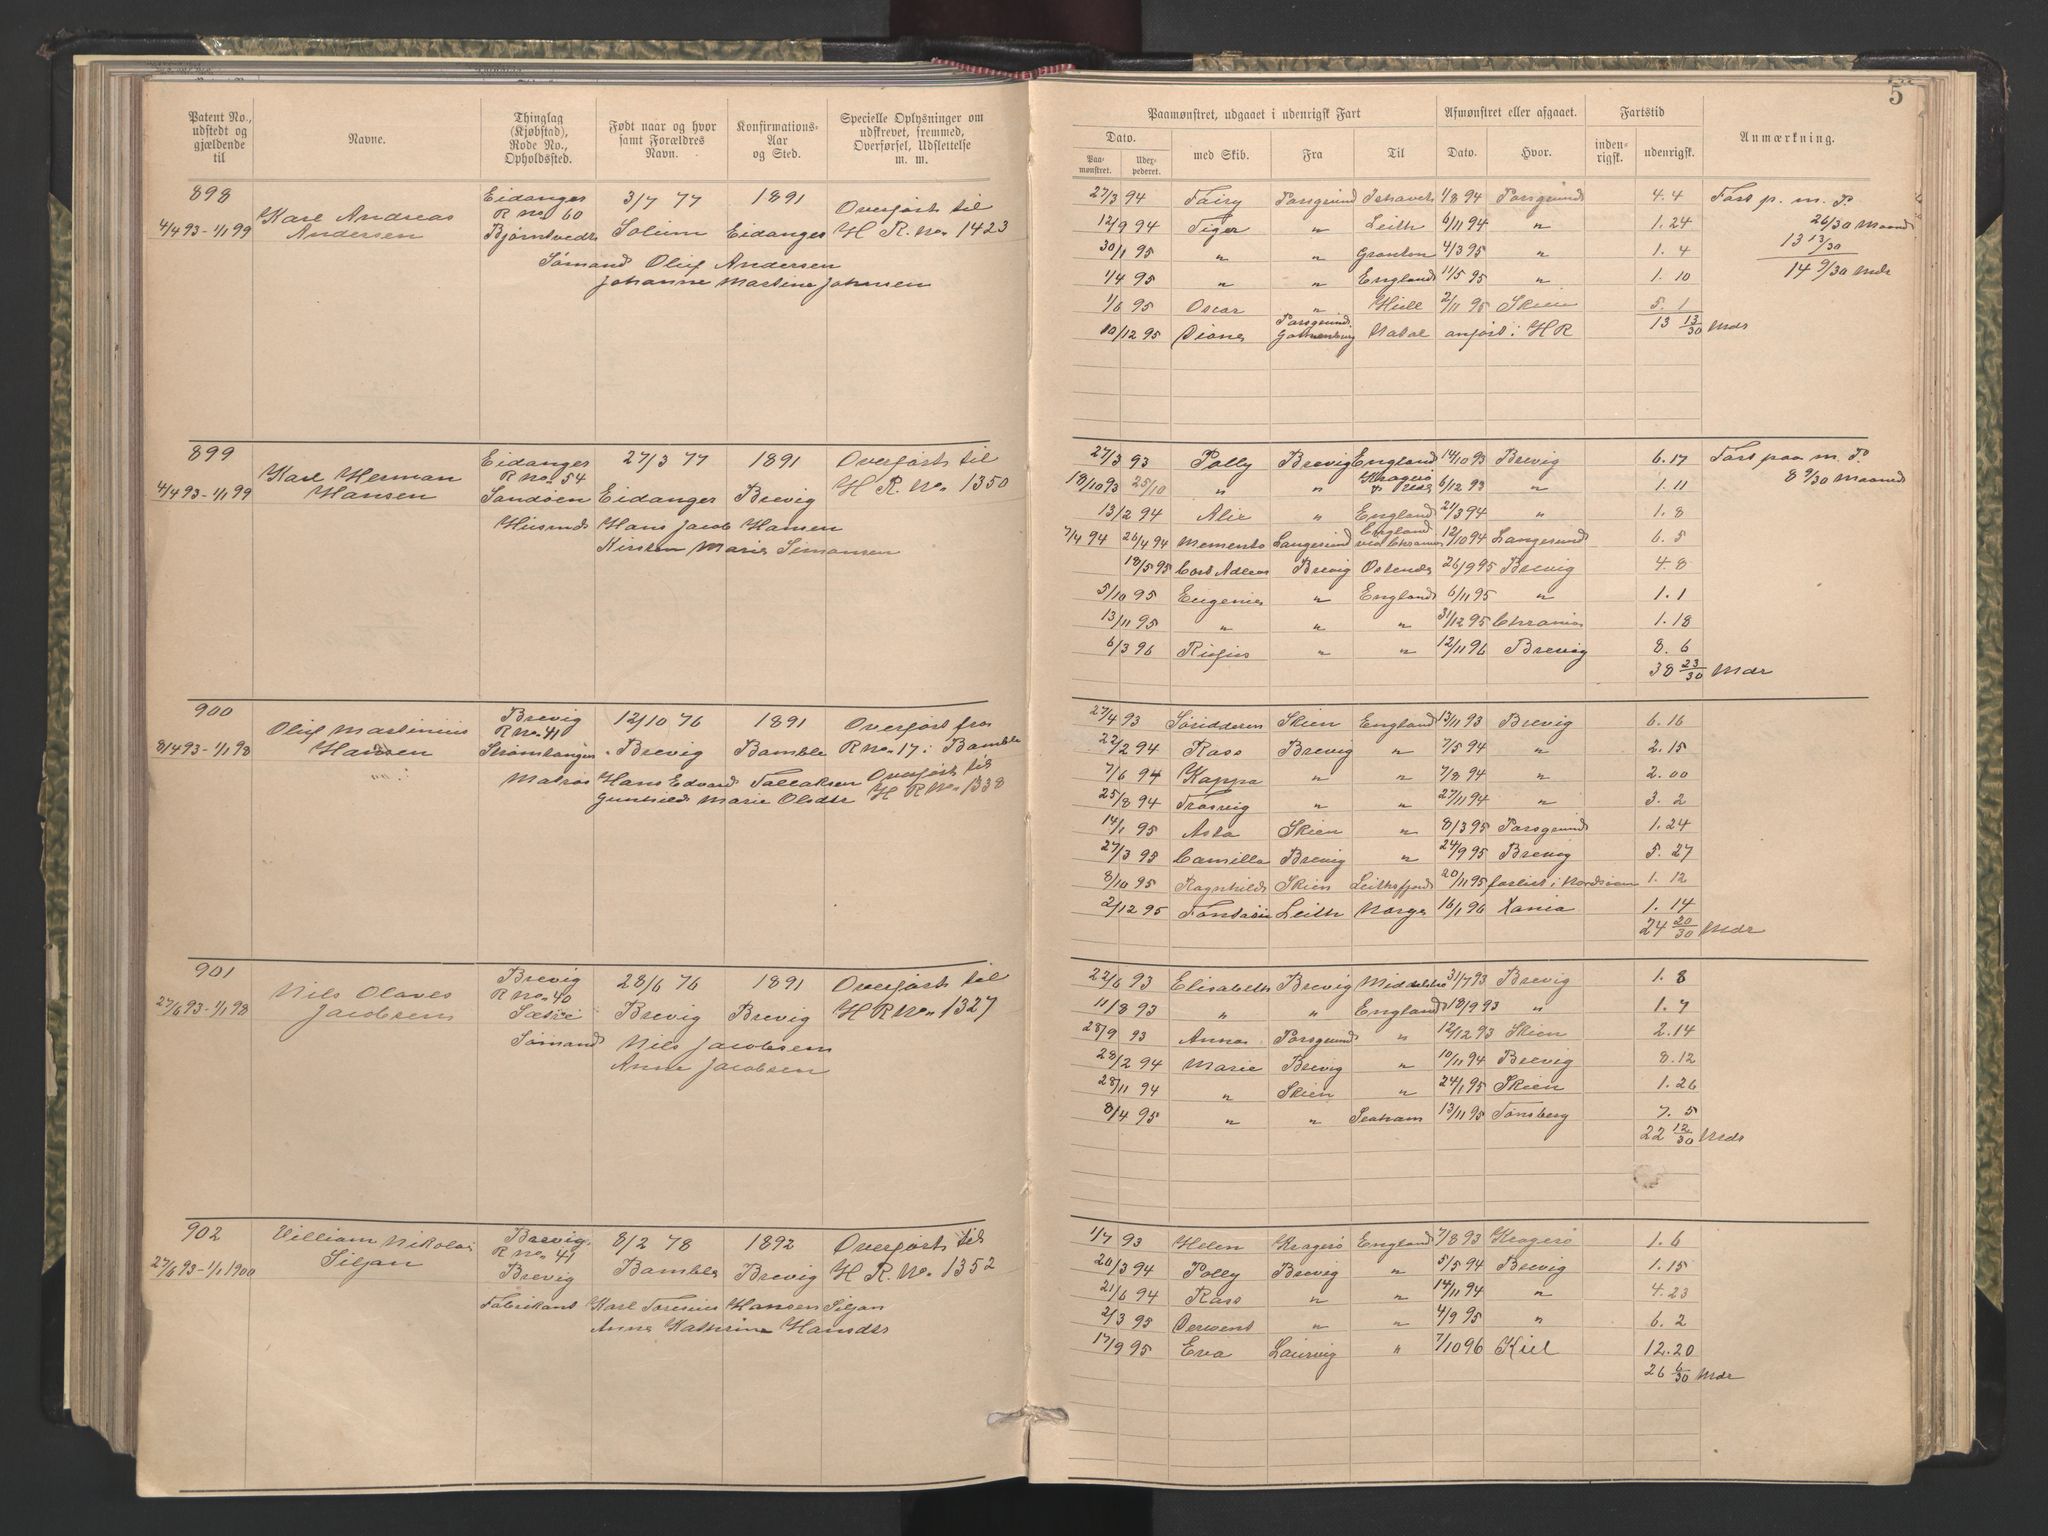 Patent No., udstedt og gjældende til
Navne.
Thinglag (Kjøbstad), Rode No., Opholdssted.
Født naar og hvor samt Forældres Navn.
Konfirmations-Aar og Sted.
Specielle Oplysninger om udskrevet, fremmed, Overførsel, Udslettelse m. m.
898
Karl Andreas
Andersen
4/4 93 - 1/1 99
Eidanger
R No 60
Bjørntvedt
3/7 77
Solum
1891
Eidanger
Overført til
H R. No. 1423
Sømand Oluf Andersen
Johanne Martine Johnsen
899
Karl Herman
Hansen
4/4 93 - 1/1 99
Eidanger
R No. 54
Sandøen
27/3 77
Eidanger
1891
Brevig
Overført til
H R. No. 1350
Husmd Hans Jacob Hansen
Kirsten Marie Simonsen
900
Oluf Martinius
Hansen
8/4 93 - 1/1 98
Brevig
R No. 41
Strømtangen
12/10 76
Brevig
1891
Bamble
Overført fra
R No. 17 i Bamble
Matros Hans Edvard Tollaksen
Gunhild Marie Olsdtr
Overført til
H R No. 1338
901
Nils Olaves
Jacobsen
27/6 93 - 1/1 98
Brevig
R No. 40
Sætre
28/6 76
Brevig
1891
Brevig
Overført til
H R No. 1327
Sømand Nils Jacobsen
Anne Jacobsen
902
Villiam Nikolai
Siljan
27/6 93 - 1/1 1900
Brevig
R No. 41
Brevig
8/2 78
Bamble
1892
Brevig
Overført til
H R. No. 1352
Fabrikant Karl Toresius Hansen Siljan
Anne Kathrine Hansdtr
5
Paamønstret, udgaaet i udenrigsk Fart
Afmønstret eller afgaaet.
Fartstid
Anmærkning.
Dato.
Paamønstret.
Udexpederet.
med Skib.
Fra
Til
Dato.
Hvor.
indenrigsk.
udenrigsk.
27/3 94 Fairy Porsgrund Ishavet 1/8 94 Porsgrund 4. 4 Fart p. m. P.
12/9 94 Tiger " Leith 6/11 94 " 1. 24 26/30 Maaned
30/1 95 " " Granton 4/3 95 " 1. 4 13 13/30
1/4 95 " " England 11/5 95 " 1. 10 14 9/30 Mdr
1/6 95 Oscar " Hull 2/11 95 Skien 5. 1
10/12 95 Diana Porsgrund Gothenburg Natal anført i H R 13 13/30 Mdr
27/3 93 Polly Brevig England 14/10 93 Brevig 6. 17 Fart paa m. P.
18/10 93 25/10 " " Kragerø 6/12 93 " 1. 11 8 9/30 Maaned
13/2 94 Alie " England 21/3 94 " 1. 8
7/4 94 26/4 94 Memento Langesund England via Chrania 12/10 94 Langesund 6. 5
18/5 95 Cort Adeler Brevig Ostende 26/9 95 Brevig 4. 8
5/10 95 Eugenie " England 6/11 95 " 1. 1
13/11 95 " " " 31/12 95 Chrania 1. 18
6/3 96 Rufus " " 12/11 96 Brevig 8. 6
38 23/30 Mdr
27/4 93 Søridderen Skien England 13/11 93 Brevig 6. 16
22/2 94 Rass Brevig " 7/5 94 " 2. 15
7/6 94 Kappa " " 7/8 94 " 2. 00
25/8 94 Frosvig " " 27/11 94 " 3. 2
14/1 95 Asta Skien " 8/3 95 Porsgrund 1. 24
27/3 95 Camilla Brevig " 24/9 95 Brevig 5. 27
8/10 95 Ragnhild Skien Leithsfjord 20/11 95 forlist i Nordsøen 1. 12
2/12 95 Fantasie Leith Norge 16/1 96 Xania 1. 14
24 20/30 Mdr
22/6 93 Elisabeth Brevig Middelsbro 31/7 93 Brevig 1. 8
11/8 93 " " England 18/9 93 " 1. 7
28/9 93 Anna Porsgrund " 12/12 93 Skien 2. 14
28/2 94 Marie Brevig " 10/11 94 Brevig 8. 12
28/11 94 " Skien " 24/1 95 Skien 1. 26
8/4 95 " " Seaham 13/11 95 Tønsberg 7. 5
22 12/30 Mdr
1/7 93 Helen Kragerø England 7/8 93 Kragerø 1. 6
20/3 94 Polly Brevig " 5/5 94 Brevig 1. 15
21/6 94 Rass " " 14/11 94 " 4. 23
2/3 95 Derwent " " 4/9 95 " 6. 2
17/9 95 Eva Laurvig " 7/10 96 Kiel 12. 20
26 6/30 Mdr